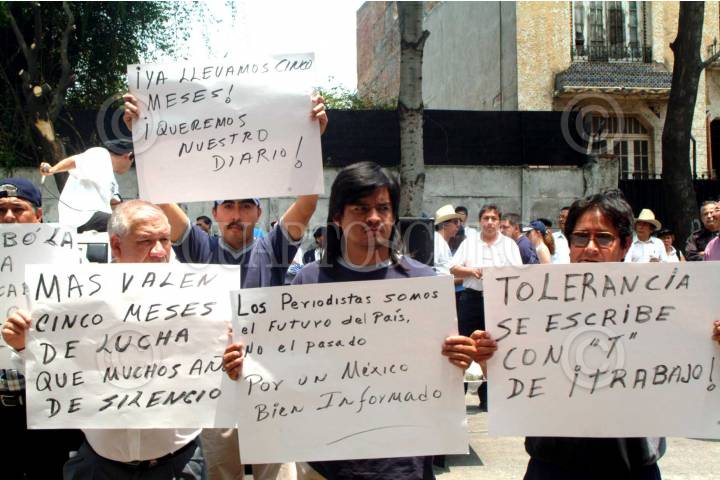 ¡YA LLEVAMOS CINCO
MESES!
¡QUEREMOS
NUESTRO
DIARIO!
BÓ LA
MAS VALEN
CINCO MESES
DE LUCHA
QUE MUCHOS AÑ
DE SILENCIO
LOS PERIODISTAS SOMOS
el FUTURO del PAÍS,
NO el PASADO
POR UN MÉXICO
BIEN INFORMADO
TOLERANCIA
SE ESCRIBE
CON "T"
DE ¡TRABAJO!
CUARTOSCURO